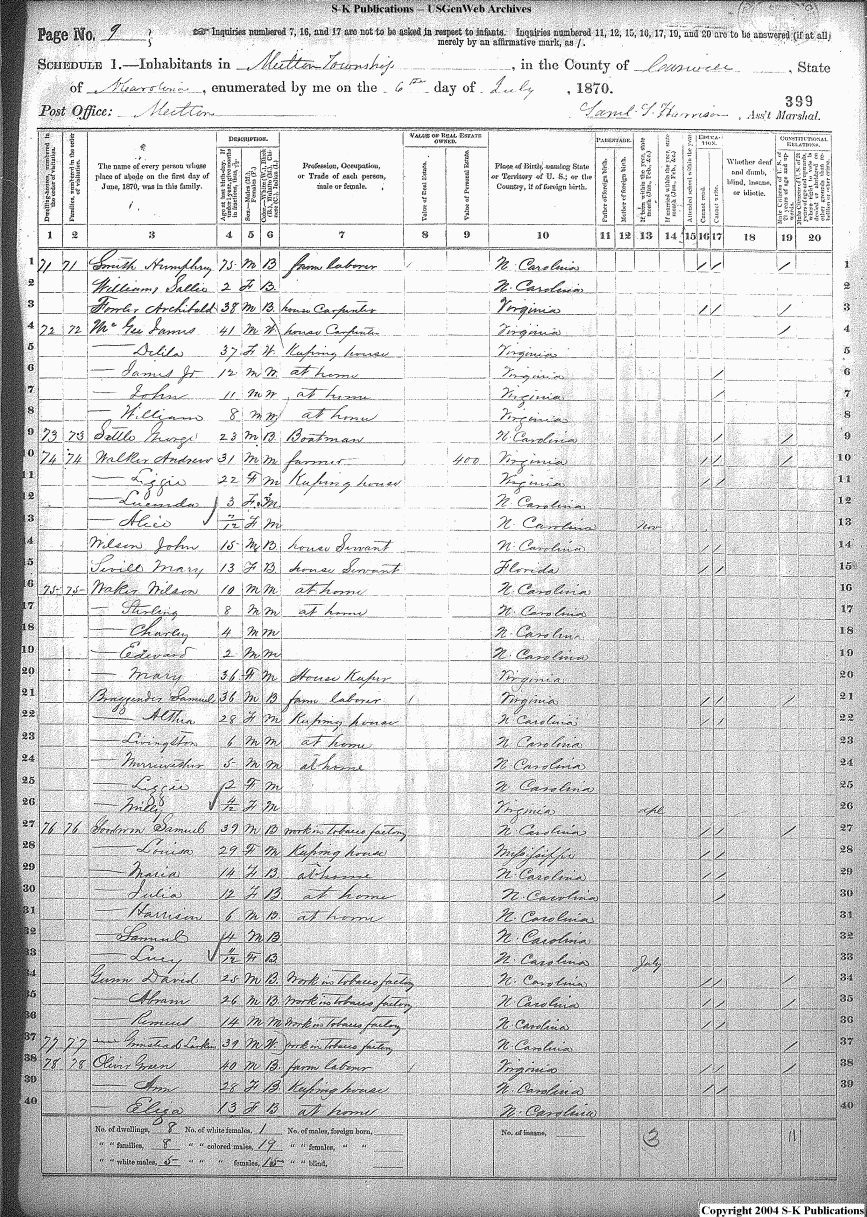 S-K Publications -- USGenWeb Archives
Page No. 9
Inquiries numbered 7, 16, and 17 are not to be asked in respect to infants. Inquiries numbered 11, 12, 15, 16, 17, 19, and 20 are to be answered (if at all) merely by an affirmative mark, as /.
SCHEDULE 1.—Inhabitants in Milton Township, in the County of Caswell, State
of N Carolina, enumerated by me on the 6th day of July, 1870.
399
Post Office: Milton Saml S Harrison, Ass't Marshal.
DESCRIPTION. VALUE OF REAL ESTATE OWNED. PARENTAGE. EDUCATION. CONSTITUTIONAL RELATIONS.
Dwelling-houses, numbered in the order of visitation.
Families, numbered in the order of visitation.
The name of every person whose place of abode on the first day of June, 1870, was in this family.
Profession, Occupation, or Trade of each person, male or female.
Value of Real Estate.
Value of Personal Estate.
Place of Birth, naming State or Territory of U. S.; or the Country, if of foreign birth.
Father of foreign birth.
Mother of foreign birth.
Attended school within the year.
Cannot read.
Cannot write.
Whether deaf and dumb, blind, insane, or idiotic.
1 2 3 4 5 6 7 8 9 10 11 12 13 14 15 16 17 18 19 20
1 71 71 Smith Humphry 75 M B farm laborer N. Carolina / / / 1
2 Williams Sallie 2 F B N. Carolina 2
3 Fowler Archibald 38 M B house Carpenter Virginia / / / 3
4 72 72 Mc Gee James 41 M W house Carpenter Virginia / 4
5 — Delila 37 F W Keeping house Virginia 5
6 — James Jr 12 M W at home Virginia / 6
7 — John 11 M W at home Virginia / 7
8 — William 8 M W at home Virginia 8
9 73 73 Settle George 23 M B Boatman N Carolina / / 9
10 74 74 Walker Andrew 31 M M farmer 400 Virginia / / / 10
11 — Lizzie 22 F M Keeping house Virginia / / 11
12 — Lucinda 3 F M N. Carolina 12
13 — Alice /12 F M N. Carolina Nov 13
14 Wilson John 15 M B house Servant N. Carolina / / 14
15 Mary 13 F B house Servant Florida / / 15
16 75 75 Waker Wilson 10 M M at home N. Carolina 16
17 — Stirling 8 M M at home N. Carolina 17
18 — Charley 4 M M N. Carolina 18
19 — Edward 2 M M N. Carolina 19
20 — Mary 36 F M House Keeper Virginia 20
21 Samuel 36 M B farm laborer Virginia / / / 21
22 — Althia 28 F M Keeping house N Carolina / / 22
23 — Livingston 6 M M at home N. Carolina 23
24 — 5 M M at home N. Carolina 24
25 — Lizzie 2 F M N Carolina 25
26 — Milly /12 F M Virginia apl 26
27 76 76 Goodwin Samuel 39 M B work in tobacco factory N. Carolina / / / 27
28 — Louisa 29 F M Keeping house Mississippi / / 28
29 — Maria 14 F B at home N. Carolina / / 29
30 — Julia 12 F B at home N Carolina / 30
31 — Harrison 6 M B at home N. Carolina 31
32 — Samuel 4 M B N. Carolina 32
33 — Lucy /12 F B N. Carolina July 33
34 Gunn David 25 M B Work in tobacco factory N. Carolina / / / 34
35 — Abram 26 M B Work in tobacco factory N. Carolina / / / 35
36 14 M M Work in tobacco factory N. Carolina / / 36
37 77 77 Larkin 39 M W work in tobacco factory N. Carolina / 37
38 78 78 Oliver Green 40 M B farm laborer Virginia / / / 38
39 — Ann 28 F B Keeping house N. Carolina / / 39
40 — Eliza 13 F B at home N. Carolina 40
No. of dwellings, 8 No. of white females, 1 No. of males, foreign born, No. of insane, 3 11
" " families, 8 " " colored males, 19 " " females, " "
" " white males, 5 " " females, 15 " " blind,
Copyright 2004 S-K Publications